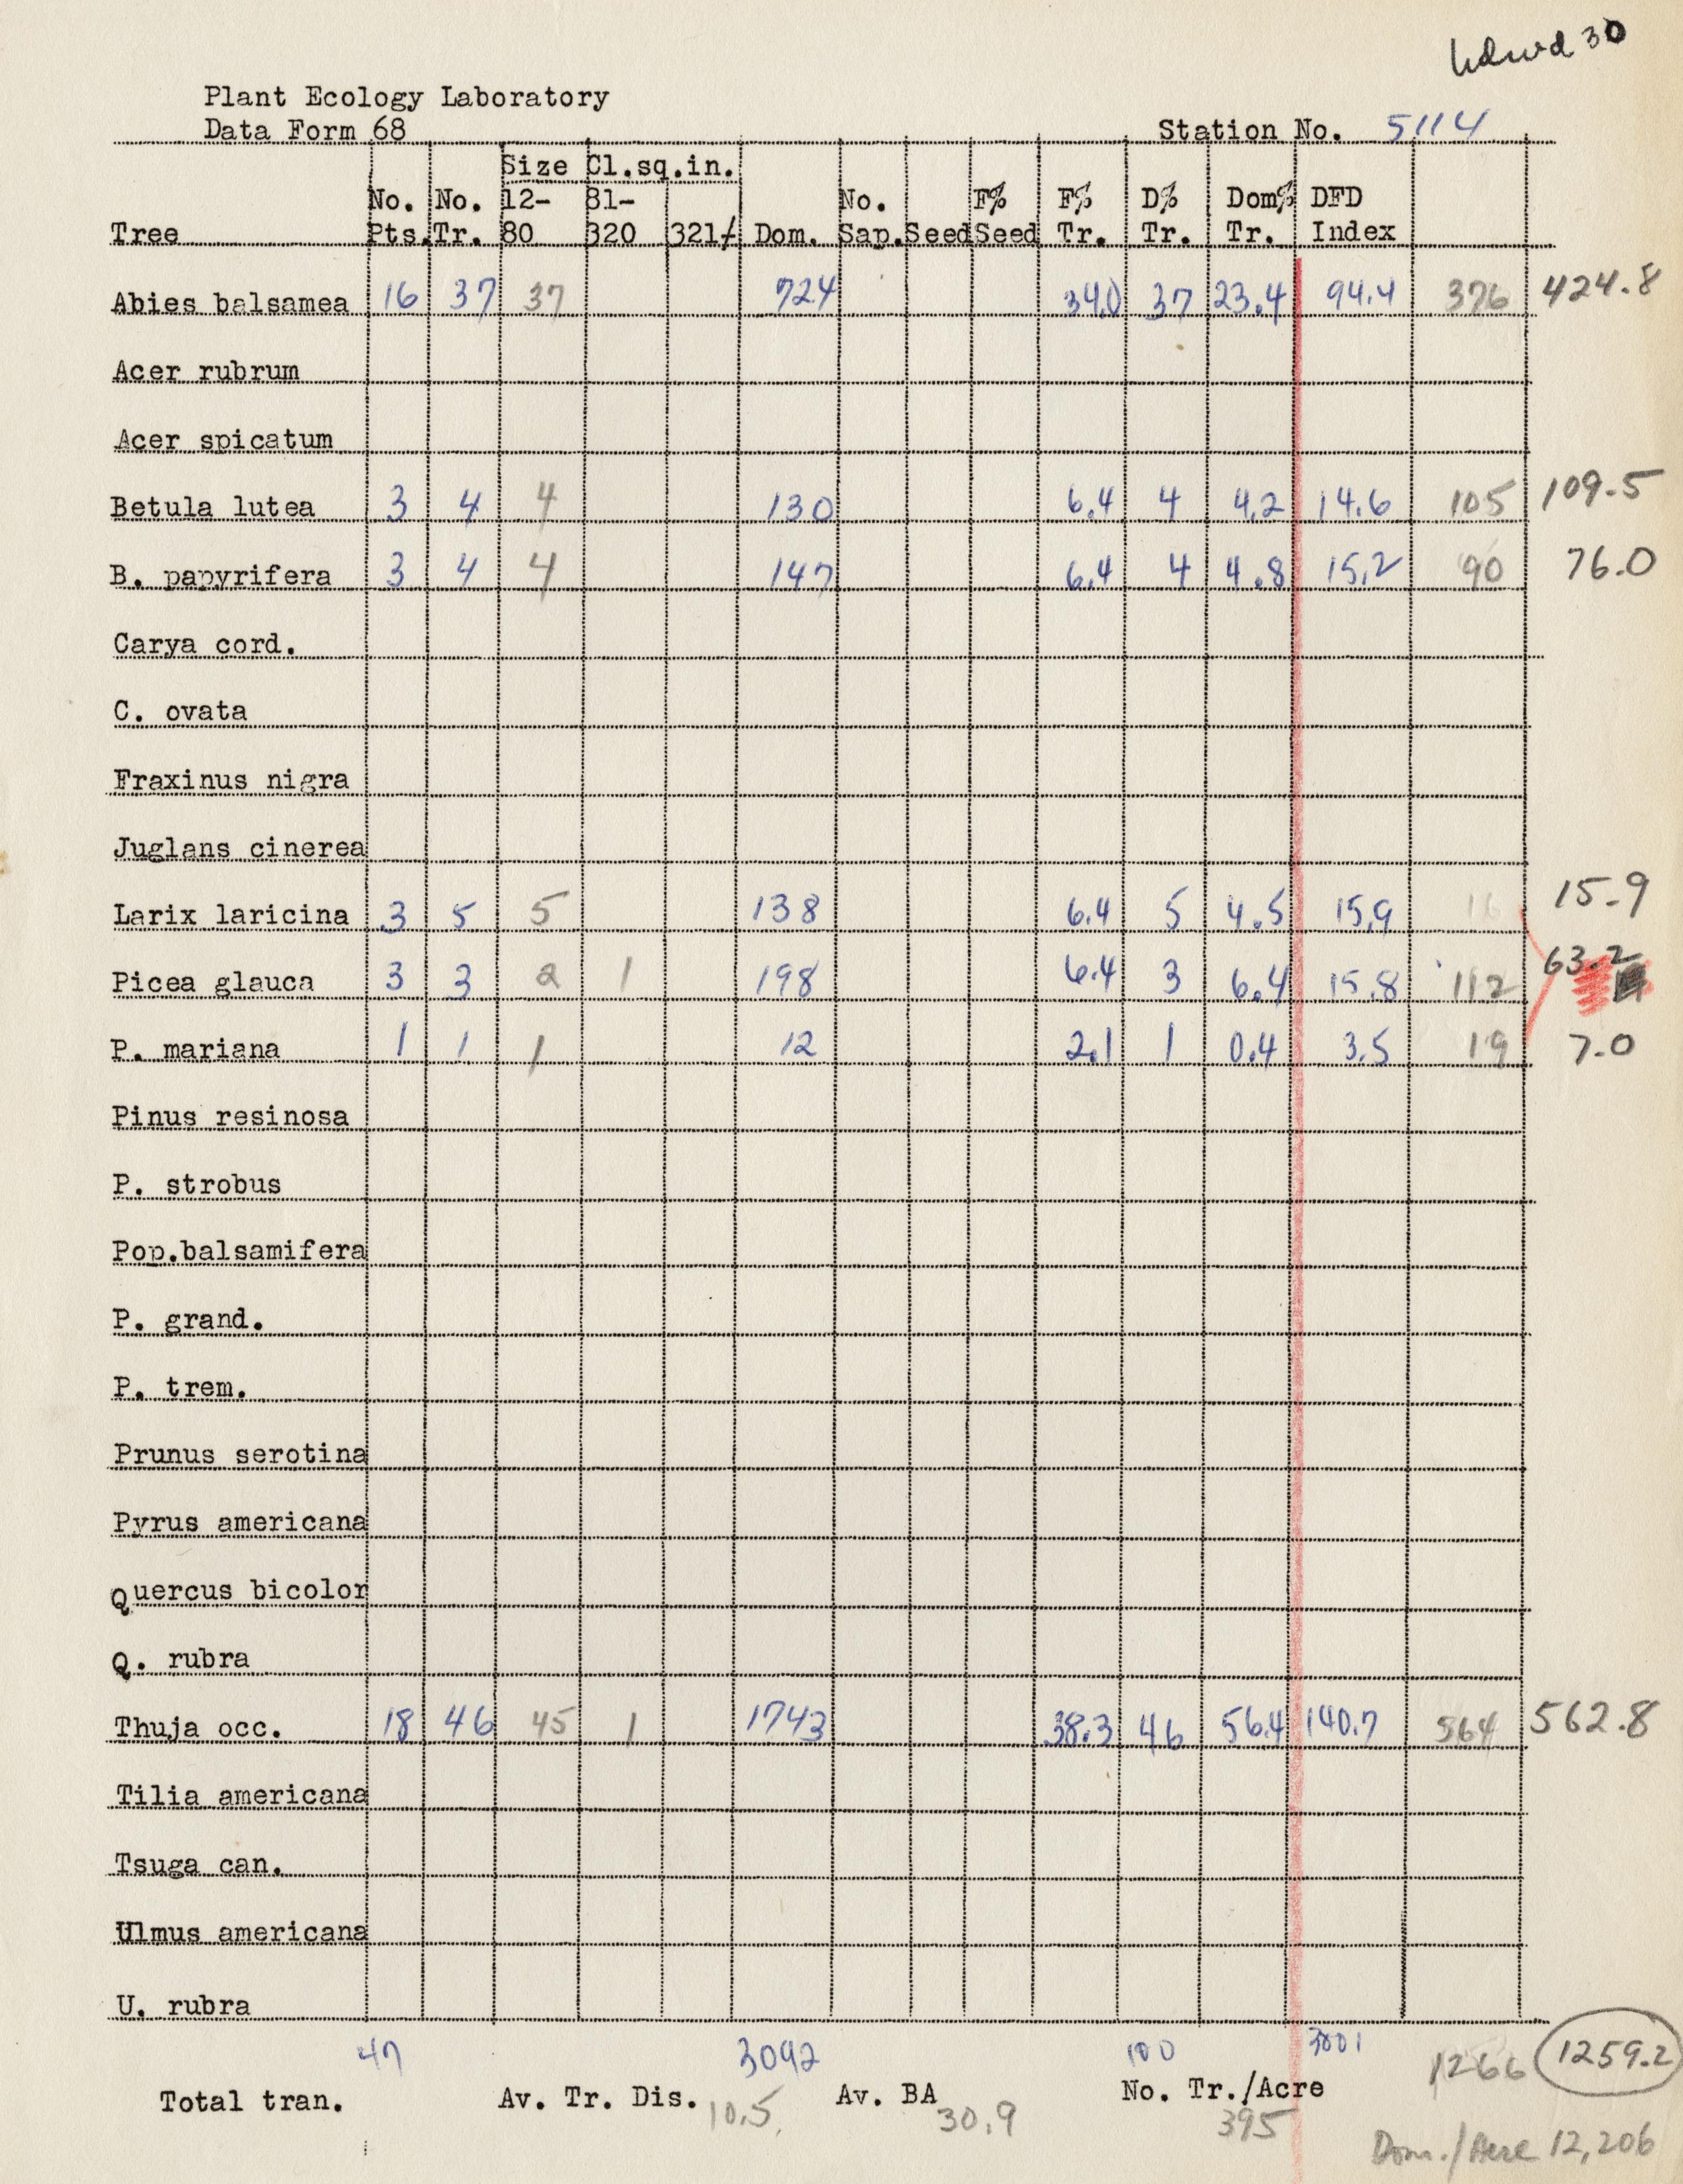 hdwd 30
Plant Ecology Laboratory
Data Form 68 Station No. 5114
Size Cl.sq.in.
No. No. 12- 81- No. F% F% D% Dom% DFD
Tree Pts. Tr. 80 320 321+ Dom. Sap. Seed Seed Tr. Tr. Tr. Index
Abies balsamea 16 37 37 724 34.0 37 23.4 94.4 376 424.8
Acer rubrum
Acer spicatum
Betula lutea 3 4 4 130 6.4 4 4.2 14.6 105 109.5
B. papyrifera 3 4 4 147 6.4 4 4.8 15.2 90 76.0
Carya cord.
C. ovata
Fraxinus nigra
Juglans cinerea
Larix laricina 3 5 5 138 6.4 5 4.5 15.9 16 15.9
Picea glauca 3 3 2 1 198 6.4 3 6.4 15.8 112 63.2
P. mariana 1 1 1 12 2.1 1 0.4 3.5 19 7.0
Pinus resinosa
P. strobus
Pop.balsamifera
P. grand.
P. trem.
Prunus serotina
Pyrus americana
Quercus bicolor
Q. rubra
Thuja occ. 18 46 45 1 1743 38.3 46 56.4 140.7 564 562.8
Tilia americana
Tsuga can.
Ulmus americana
U. rubra
47 3092 100 3001 1266 1259.2
Total tran. Av. Tr. Dis. 10.5 Av. BA 30.9 No. Tr./Acre 395
Dom./Acre 12,206